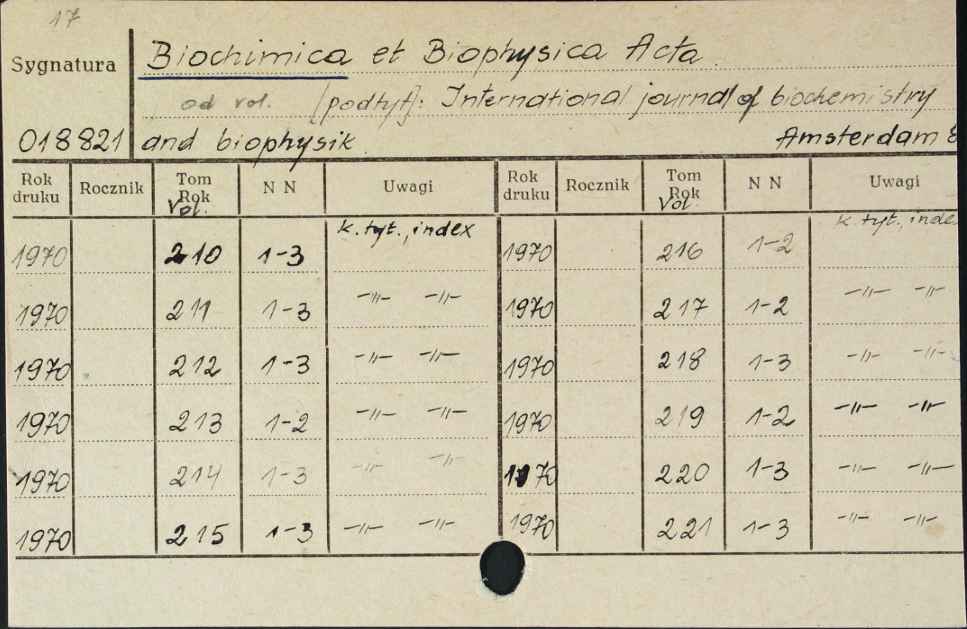 17
Sygnatura Biochimica et Biophysica Acta
od vol. [podtyt]: International journal of biochemistry
018821 and biophysik Amsterdam
Rok druku Rocznik Tom Rok Vol. N N Uwagi Rok druku Rocznik Tom Rok Vol. N N Uwagi
1970 210 1-3 k. tyt., index 1970 216 1-2 k. tyt., inde
1970 211 1-3 -〃- -〃- 1970 217 1-2 -〃- -〃-
1970 212 1-3 -〃- -〃- 1970 218 1-3 -〃- -〃-
1970 213 1-2 -〃- -〃- 1970 219 1-2 -〃- -〃-
1970 214 1-3 -〃- -〃- 1970 220 1-3 -〃- -〃-
1970 215 1-3 -〃- -〃- 1970 221 1-3 -〃- -〃-